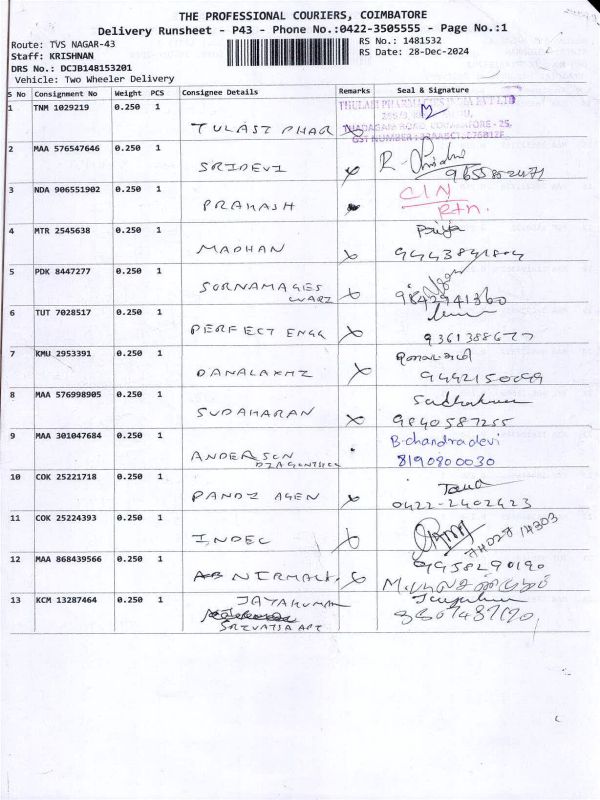 THE PROFESSIONAL COURIERS, COIMBATORE
Delivery Runsheet - P43 - Phone No.:0422-3505555 - Page No.:1
Route: TVS NAGAR-43
RS No.: 1481532
Staff: KRISHNAN
RS Date: 28-Dec-2024
DRS No.: DCJB148153201
Vehicle: Two Wheeler Delivery
S No Consignment No Weight PCS Consignee Details Remarks Seal & Signature
1 TNM 1029219 0.250 1
TULASI PHAR
2 MAA 576547646 0.250 1
SRIDEVI
3 NDA 906551902 0.250 1 CIN
PRAKASH Rtn.
4 MTR 2545638 0.250 1 Priya
MADHAN
5 PDK 8447277 0.250 1
SORNAMAGES
WARI 9842941360
6 TUT 7028517 0.250 1
PERFECT ENGG
7 KMU 2953391 0.250 1
DANALAXMI 9442150099
8 MAA 576998905 0.250 1
SUDAHARAN 9840587255
9 MAA 301047684 0.250 1 B.chandradevi
ANDERSON 8190800030
DIAGONSTICS
10 COK 25221718 0.250 1
PANDI AGEN 0422-2402423
11 COK 25224393 0.250 1
INDEC
12 MAA 868439566 0.250 1 9958290190
NIRMALA
13 KCM 13287464 0.250 1 JAYAKUMAR
SRIVATSA APT